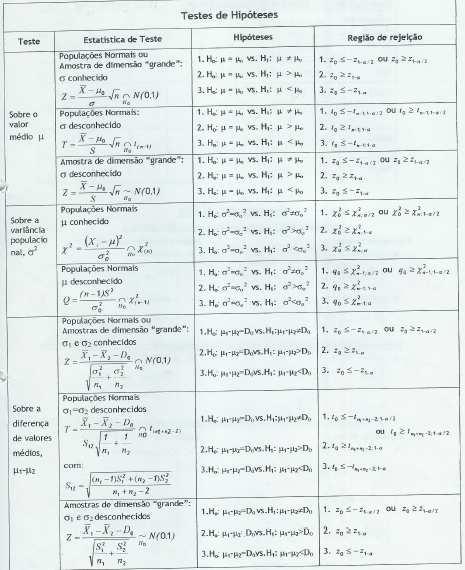 Testes de Hipóteses
Teste
Estatística de Teste
Hipóteses
Região de rejeição
Sobre o
valor
médio μ
Populações Normais ou
Amostra de dimensão "grande":
σ conhecido
Z = (X̄ − μ₀)/σ √n ∩ₕ₀ N(0,1)
1. H₀: μ = μ₀ vs. H₁: μ ≠ μ₀
2. H₀: μ = μ₀ vs. H₁: μ > μ₀
3. H₀: μ = μ₀ vs. H₁: μ < μ₀
1. z₀ ≤ −z₁₋α/₂ ou z₀ ≥ z₁₋α/₂
2. z₀ ≥ z₁₋α
3. z₀ ≤ −z₁₋α
Populações Normais:
σ desconhecido
T = (X̄ − μ₀)/S √n ∩ₕ₀ t₍ₙ₋₁₎
1. H₀: μ = μ₀ vs. H₁: μ ≠ μ₀
2. H₀: μ = μ₀ vs. H₁: μ > μ₀
3. H₀: μ = μ₀ vs. H₁: μ < μ₀
1. t₀ ≤ −tₙ₋₁;₁₋α/₂ ou t₀ ≥ tₙ₋₁;₁₋α/₂
2. t₀ ≥ tₙ₋₁;₁₋α
3. t₀ ≤ −tₙ₋₁;₁₋α
Amostra de dimensão "grande":
σ desconhecido
Z = (X̄ − μ₀)/S √n ~ₕ₀ N(0,1)
1. H₀: μ = μ₀ vs. H₁: μ ≠ μ₀
2. H₀: μ = μ₀ vs. H₁: μ > μ₀
3. H₀: μ = μ₀ vs. H₁: μ < μ₀
1. z₀ ≤ −z₁₋α/₂ ou z₀ ≥ z₁₋α/₂
2. z₀ ≥ z₁₋α
3. z₀ ≤ −z₁₋α
Sobre a
variância
populacio
nal, σ²
Populações Normais
μ conhecido
χ² = (Xᵢ − μ)²/σ₀² ∩ₕ₀ χ²₍ₙ₎
1. H₀: σ²=σ₀² vs. H₁: σ²≠σ₀²
2. H₀: σ²=σ₀² vs. H₁: σ²>σ₀²
3. H₀: σ²=σ₀² vs. H₁: σ²<σ₀²
1. χ₀² ≤ χ²ₙ;α/₂ ou χ₀² ≥ χ²ₙ;₁₋α/₂
2. χ₀² ≥ χ²ₙ;₁₋α
3. χ₀² ≤ χ²ₙ;α
Populações Normais
μ desconhecido
Q = (n−1)S²/σ₀² ∩ₕ₀ χ²₍ₙ₋₁₎
1. H₀: σ²=σ₀² vs. H₁: σ²≠σ₀²
2. H₀: σ²=σ₀² vs. H₁: σ²>σ₀²
3. H₀: σ²=σ₀² vs. H₁: σ²<σ₀²
1. q₀ ≤ χ²ₙ₋₁;α/₂ ou q₀ ≥ χ²ₙ₋₁;₁₋α/₂
2. q₀ ≥ χ²ₙ₋₁;₁₋α
3. q₀ ≤ χ²ₙ₋₁;α
Sobre a
diferença
de valores
médios,
μ₁-μ₂
Populações Normais ou
Amostras de dimensão "grande":
σ₁ e σ₂ conhecidos
Z = (X̄₁ − X̄₂ − D₀)/√(σ₁²/n₁ + σ₂²/n₂) ∩ₕ₀ N(0,1)
1.H₀: μ₁-μ₂=D₀vs.H₁:μ₁-μ₂≠D₀
2.H₀: μ₁-μ₂=D₀vs.H₁: μ₁-μ₂>D₀
3.H₀: μ₁-μ₂=D₀vs.H₁: μ₁-μ₂<D₀
1. z₀ ≤ −z₁₋α/₂ ou z₀ ≥ z₁₋α/₂
2. z₀ ≥ z₁₋α
3. z₀ ≤ −z₁₋α
Populações Normais
σ₁=σ₂ desconhecidos
T = (X̄₁ − X̄₂ − D₀)/(S₁₂ √(1/n₁ + 1/n₂)) ∩ₕ₀ t₍ₙ₁₊ₙ₂₋₂₎
com:
S₁₂ = √(((n₁ −1)S₁² + (n₂ −1)S₂²)/(n₁ + n₂ − 2))
1.H₀: μ₁-μ₂=D₀vs.H₁:μ₁-μ₂≠D₀
2.H₀: μ₁-μ₂=D₀vs.H₁: μ₁-μ₂>D₀
3.H₀: μ₁-μ₂=D₀vs.H₁: μ₁-μ₂<D₀
1. t₀ ≤ −tₙ₁₊ₙ₂₋₂;₁₋α/₂
ou t₀ ≥ tₙ₁₊ₙ₂₋₂;₁₋α/₂
2. t₀ ≥ tₙ₁₊ₙ₂₋₂;₁₋α
3. t₀ ≤ −tₙ₁₊ₙ₂₋₂;₁₋α
Amostras de dimensão "grande":
σ₁ e σ₂ desconhecidos
Z = (X̄₁ − X̄₂ − D₀)/√(S₁²/n₁ + S₂²/n₂) ~ₕ₀ N(0,1)
1.H₀: μ₁-μ₂=D₀vs.H₁: μ₁-μ₂≠D₀
2.H₀: μ₁-μ₂: D₀vs.H₁: μ₁-μ₂>D₀
3.H₀: μ₁-μ₂=D₀vs.H₁: μ₁-μ₂<D₀
1. z₀ ≤ −z₁₋α/₂ ou z₀ ≥ z₁₋α/₂
2. z₀ ≥ z₁₋α
3. z₀ ≤ −z₁₋α